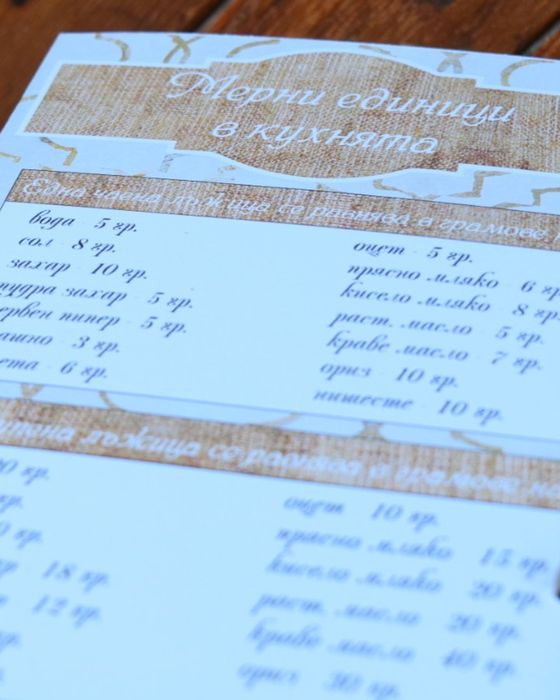 Мерни единици
в кухнята
Една чаена лъжица се равнява в грамове
вода - 5 гр.
сол - 8 гр.
захар - 10 гр.
пудра захар - 5 гр.
ервен пипер - 5 гр.
ашно - 3 гр.
ета - 6 гр.
оцет - 5 гр.
прясно мляко - 6 гр
кисело мляко - 8 гр.
раст. масло - 5 гр.
краве масло - 7 гр.
ориз - 10 гр.
нишесте - 10 гр.
лъжица се равнява в грамове
0 гр.
гр.
0 гр.
18 гр.
12 гр.
гр.
оцет 10 гр.
прясно мляко 15 гр.
кисело мляко 20 гр.
раст. масло 20 гр.
краве масло 40 гр.
ориз 30 гр.